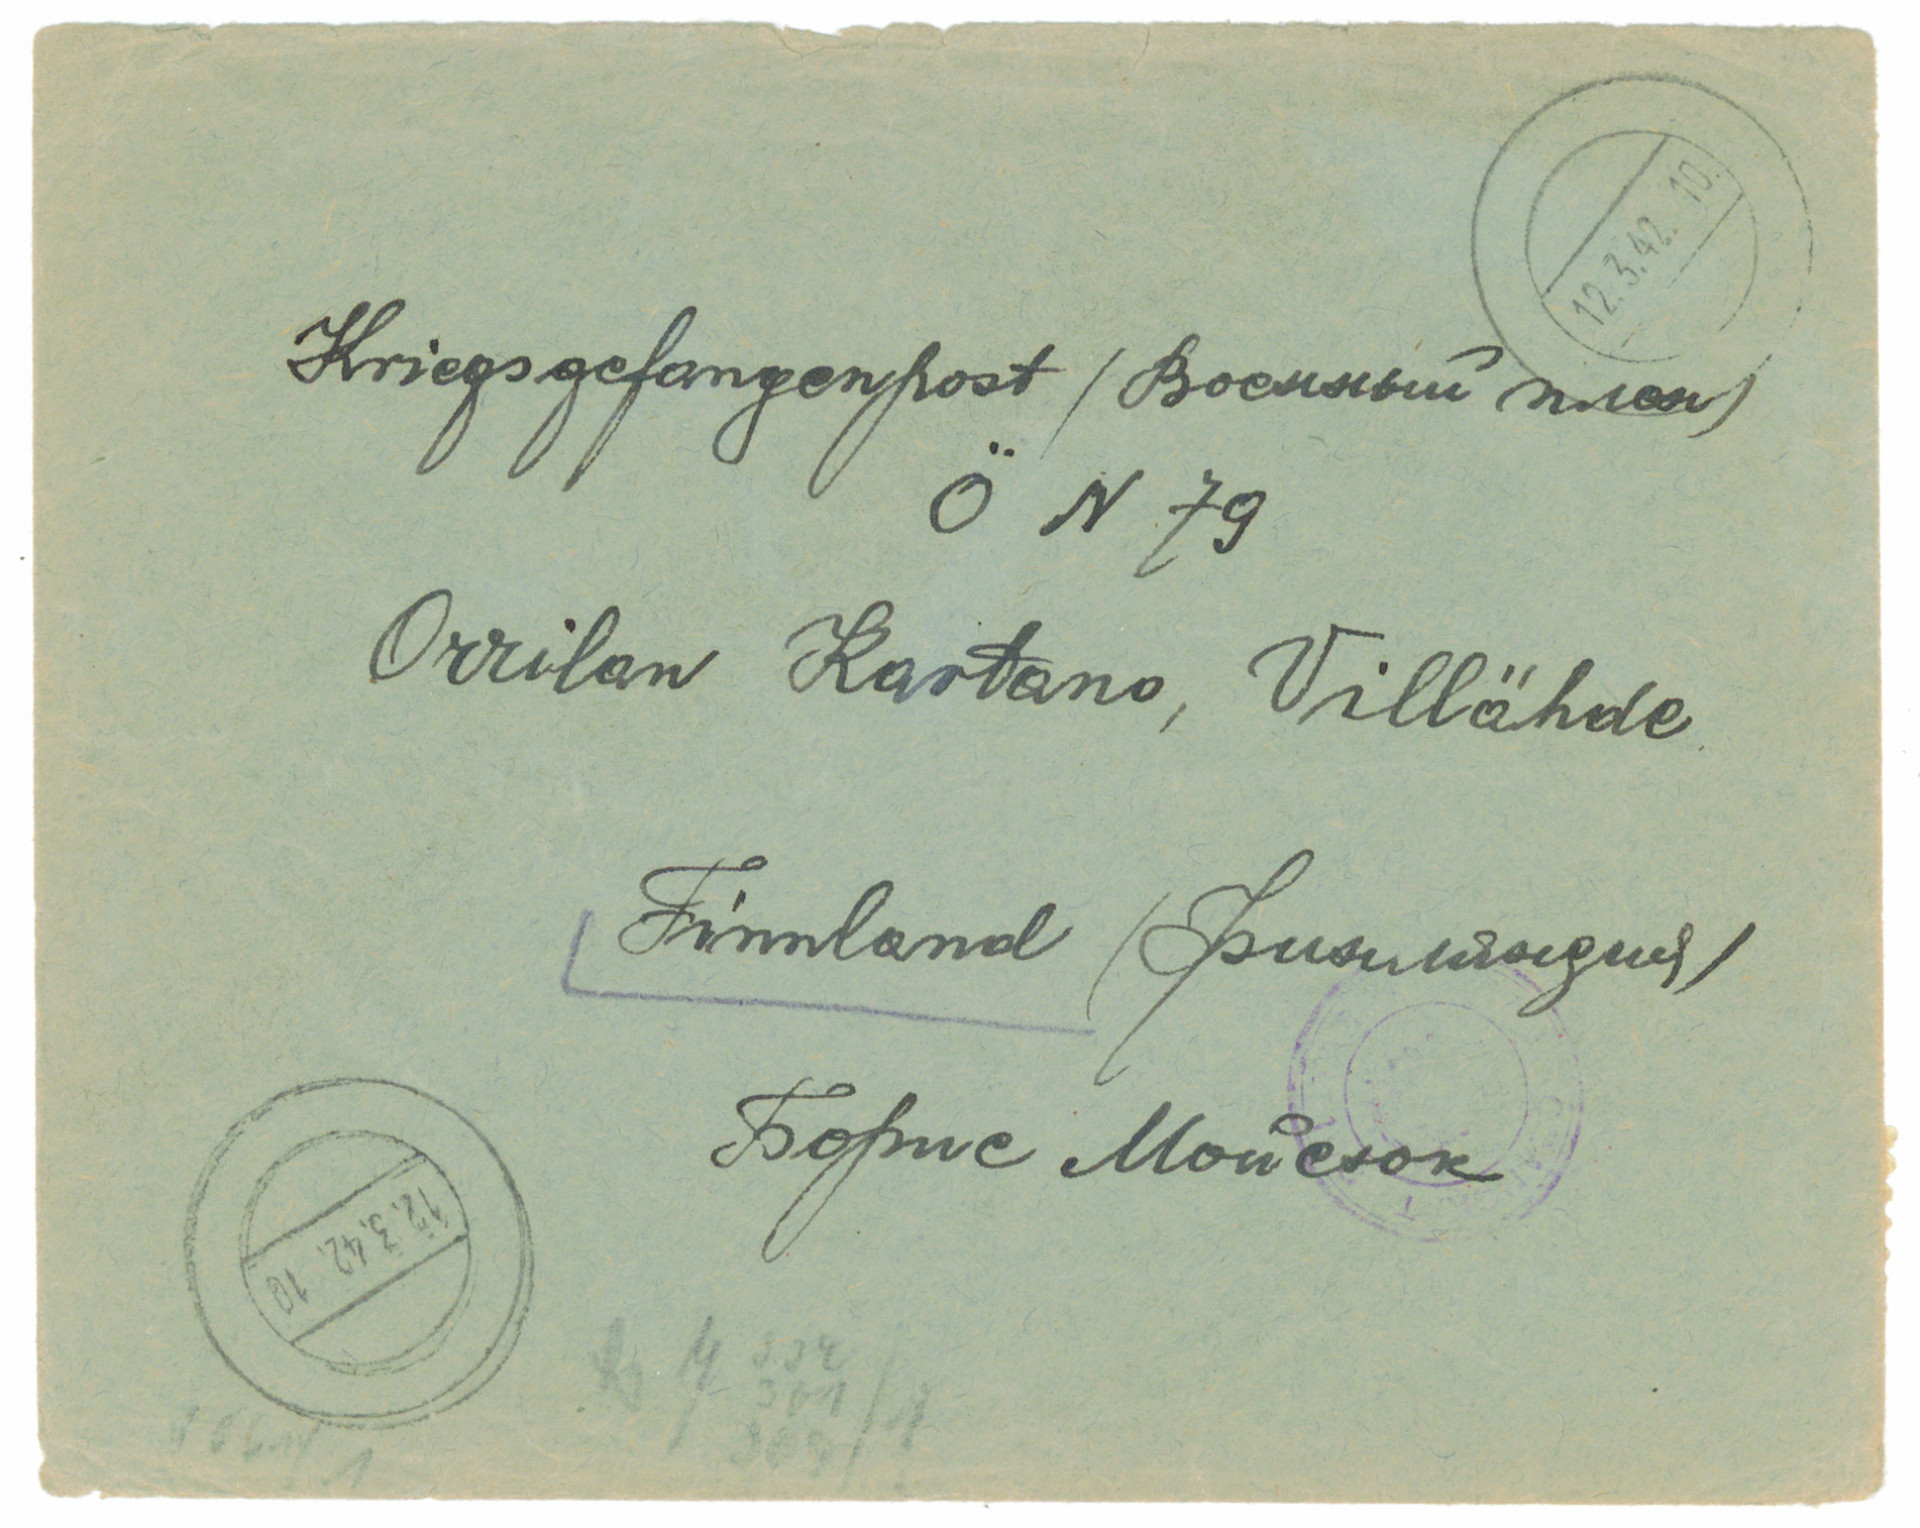 12.3.42. 10.
Kriegsgefangenpost / Военный плен)
Ö N 79
Orrilan Kartano, Villähde
Finnland (Финляндия)
Борис Мойсеюк
12.3.42. 10
334
301